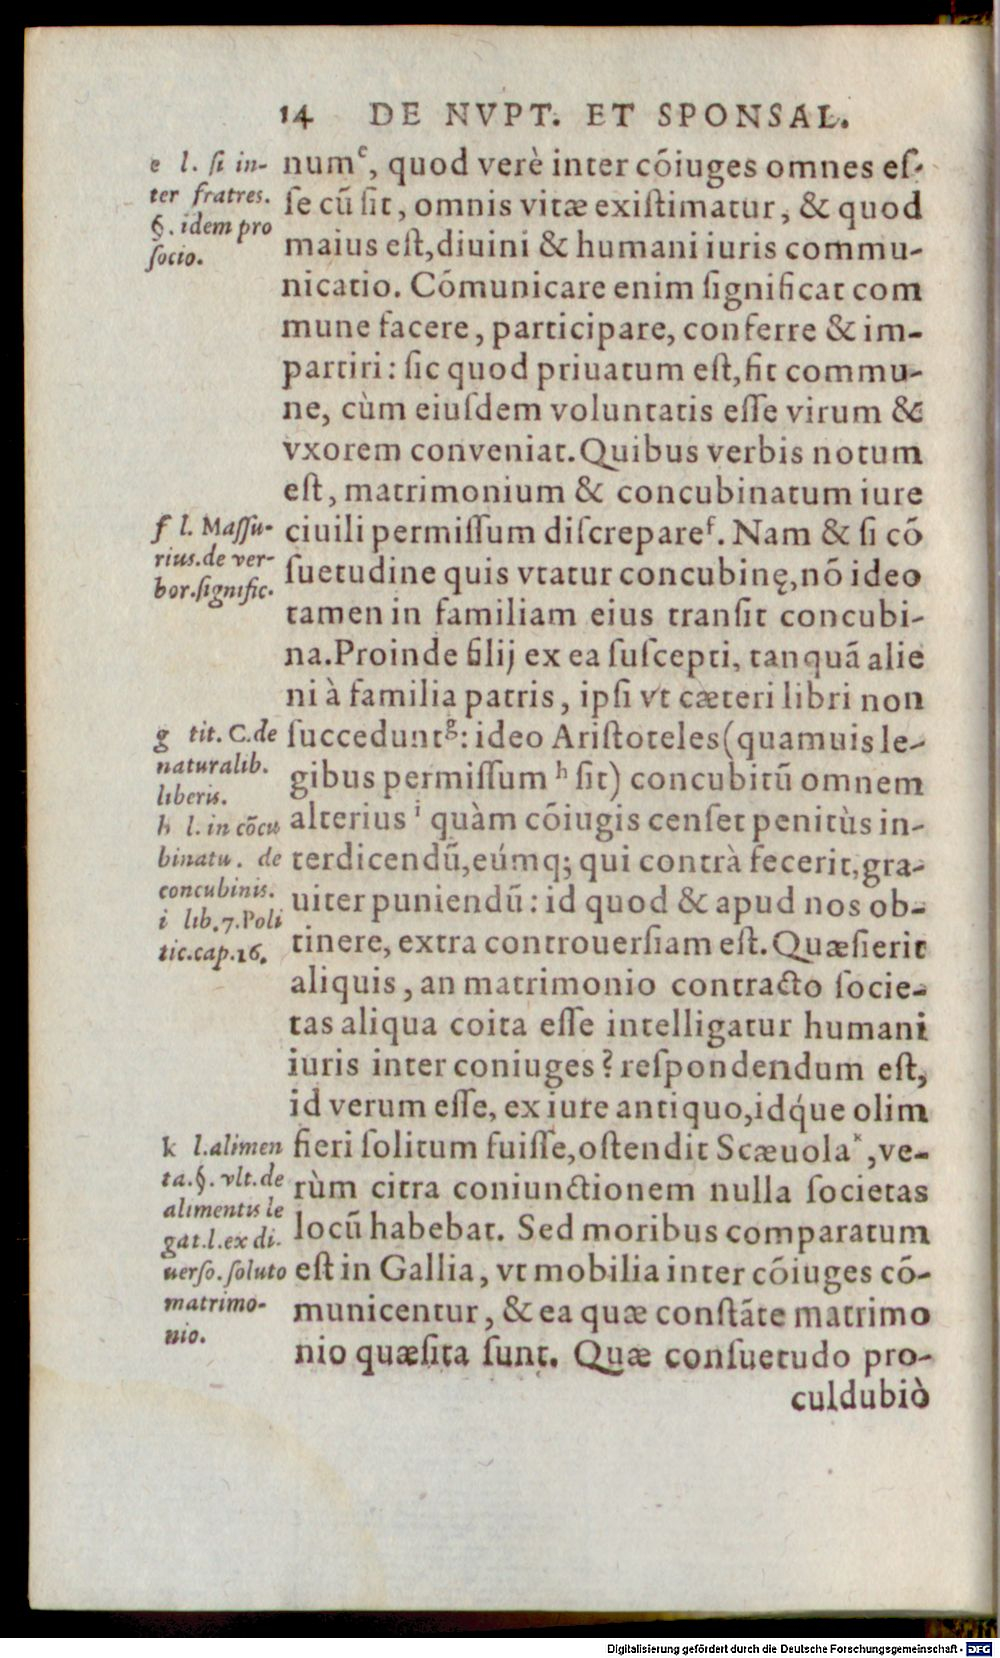 14 DE NVPT. ET SPONSAL.
numᵉ, quod verè inter cõiuges omnes eſ-
ſe cũ ſit, omnis vitæ exiſtimatur, & quod
maius eſt, diuini & humani iuris commu-
nicatio. Cõmunicare enim ſignificat com
mune facere, participare, conferre & im-
partiri: ſic quod priuatum eſt, fit commu-
ne, cùm eiuſdem voluntatis eſſe virum &
vxorem conveniat. Quibus verbis notum
eſt, matrimonium & concubinatum iure
ciuili permiſſum diſcrepareᶠ. Nam & ſi cõ
ſuetudine quis vtatur concubinę, nõ ideo
tamen in familiam eius tranſit concubi-
na. Proinde filij ex ea ſuſcepti, tanquã alie
ni à familia patris, ipſi vt cæteri libri non
ſucceduntᵍ: ideo Ariſtoteles (quamuis le-
gibus permiſſum ʰ ſit) concubitũ omnem
alterius ⁱ quàm cõiugis cenſet penitùs in-
terdicendũ, eúmq; qui contrà fecerit, gra-
uiter puniendũ: id quod & apud nos ob-
tinere, extra controuerſiam eſt. Quæſierit
aliquis, an matrimonio contracto ſocie-
tas aliqua coita eſſe intelligatur humani
iuris inter coniuges? reſpondendum eſt,
id verum eſſe, ex iure antiquo, idq́ue olim
fieri ſolitum fuiſſe, oſtendit Scæuolaᵏ, ve-
rùm citra coniunctionem nulla ſocietas
locũ habebat. Sed moribus comparatum
eſt in Gallia, vt mobilia inter cõiuges cõ-
municentur, & ea quæ conſtãte matrimo
nio quæſita ſunt. Quæ conſuetudo pro-
culdubiò
e l. ſi in-
ter fratres.
§. idem pro
ſocio.
f l. Maſſu-
rius. de ver-
bor. ſignific.
g tit. C. de
naturalib.
liberis.
h l. in cõcu
binatu. de
concubinis.
i lib. 7. Poli
tic. cap. 16.
k l. alimen
ta. §. vlt. de
alimentis le
gat. l. ex di-
uerſo. ſoluto
matrimo-
nio.
Digitalisierung gefördert durch die Deutsche Forschungsgemeinschaft - DFG